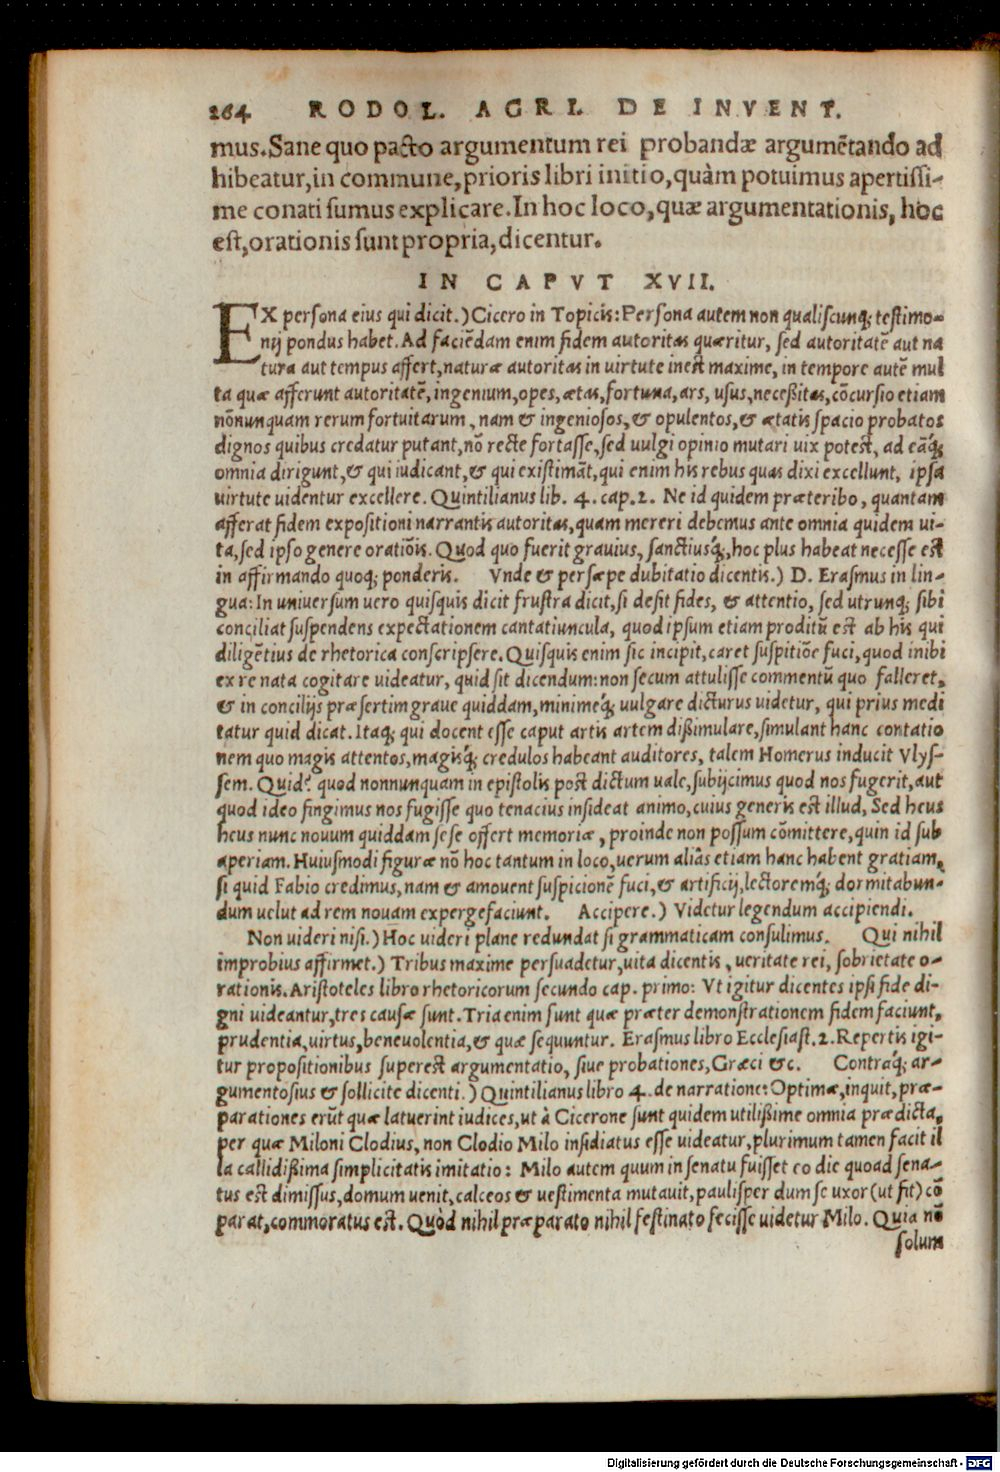 264 RODOL. AGRI. DE INVENT.
mus. Sane quo pacto argumentum rei probandæ argumētando ad
hibeatur, in commune, prioris libri initio, quàm potuimus apertissi-
me conati sumus explicare. In hoc loco, quæ argumentationis, hoc
est, orationis sunt propria, dicentur.
IN CAPVT XVII.
EX persona eius qui dicit.) Cicero in Topicis: Persona autem non qualiscunq; testimo-
nij pondus habet. Ad faciēdam enim fidem autoritas quæritur, sed autoritatē aut na
tura aut tempus affert, naturæ autoritas in virtute inest maxime, in tempore autē mul
ta quæ afferunt autoritatē, ingenium, opes, ætas, fortuna, ars, usus, neceßitas, cōcursio etiam
nōnunquam rerum fortuitarum, nam & ingeniosos, & opulentos, & ætatis spacio probatos
dignos quibus credatur putant, nō recte fortasse, sed uulgi opinio mutari uix potest, ad eāq́;
omnia dirigunt, & qui iudicant, & qui existimāt, qui enim his rebus quas dixi excellunt, ipsa
uirtute uidentur excellere. Quintilianus lib. 4. cap. 2. Ne id quidem præteribo, quantam
afferat fidem expositioni narrantis autoritas, quam mereri debemus ante omnia quidem ui-
ta, sed ipso genere oratiōis. Quod quo fuerit grauius, sanctiusq́;, hoc plus habeat necesse est
in affirmando quoq; ponderis. Vnde & persæpe dubitatio dicentis.) D. Erasmus in lin-
gua: In uniuersum uero quisquis dicit frustra dicit, si desit fides, & attentio, sed utrunq; sibi
conciliat suspendens expectationem cantatiuncula, quod ipsum etiam proditū est ab his qui
diligētius de rhetorica conscripsere. Quisquis enim sic incipit, caret suspitiōe fuci, quod inibi
ex re nata cogitare uideatur, quid sit dicendum: non secum attulisse commentū quo falleret,
& in concilijs præsertim graue quiddam, minimeq́; uulgare dicturus uidetur, qui prius medi
tatur quid dicat. Itaq; qui docent esse caput artis artem dißimulare, simulant hanc contatio
nem quo magis attentos, magisq́; credulos habeant auditores, talem Homerus inducit Vlys-
sem. Quid? quod nonnunquam in epistolis post dictum uale, subijcimus quod nos fugerit, aut
quod ideo fingimus nos fugisse quo tenacius insideat animo, cuius generis est illud, Sed heus
heus nunc nouum quiddam sese offert memoriæ, proinde non possum cōmittere, quin id sub
aperiam. Huiusmodi figuræ nō hoc tantum in loco, uerum aliâs etiam hanc habent gratiam,
si quid Fabio credimus, nam & amouent suspicionē fuci, & artificij, lectoremq́; dormitabun-
dum uelut ad rem nouam expergefaciunt. Accipere.) Videtur legendum accipiendi.
Non uideri nisi.) Hoc uideri plane redundat si grammaticam consulimus. Qui nihil
improbius affirmet.) Tribus maxime persuadetur, uita dicentis, ueritate rei, sobrietate o-
rationis. Aristoteles libro rhetoricorum secundo cap. primo: Vt igitur dicentes ipsi fide di-
gni uideantur, tres causæ sunt. Tria enim sunt quæ præter demonstrationem fidem faciunt,
prudentia, uirtus, beneuolentia, & quæ sequuntur. Erasmus libro Ecclesiast. 2. Repertis igi-
tur propositionibus superest argumentatio, siue probationes, Græci &c. Contraq́; ar-
gumentosius & sollicite dicenti.) Quintilianus libro 4. de narratione: Optimæ, inquit, præ-
parationes erūt quæ latuerint iudices, ut à Cicerone sunt quidem utilißime omnia prædicta,
per quæ Miloni Clodius, non Clodio Milo insidiatus esse uideatur, plurimum tamen facit il
la callidißima simplicitatis imitatio: Milo autem quum in senatu fuisset eo die quoad sena-
tus est dimissus, domum uenit, calceos & uestimenta mutauit, paulisper dum se uxor (ut fit) cō
parat, commoratus est. Quòd nihil præparato nihil festinato fecisse uidetur Milo. Quia nō
solum
Digitalisierung gefördert durch die Deutsche Forschungsgemeinschaft - DFG